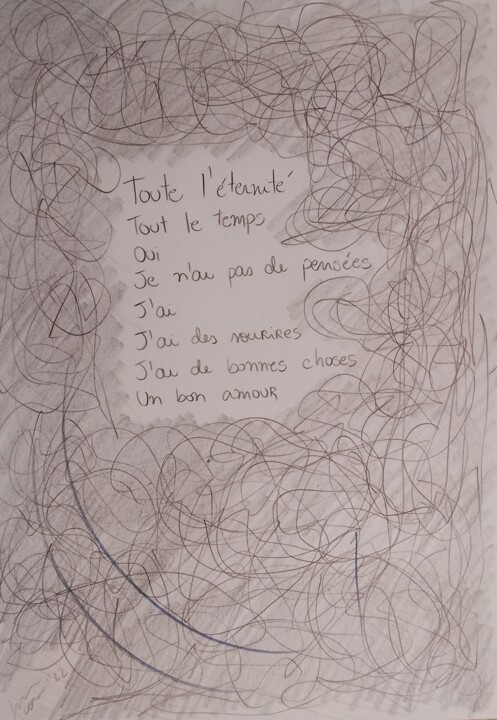 Toute l'éternité
Tout le temps
Oui
Je n'ai pas de pensées
J'ai
J'ai des sourires
J'ai de bonnes choses
Un bon amour
'82